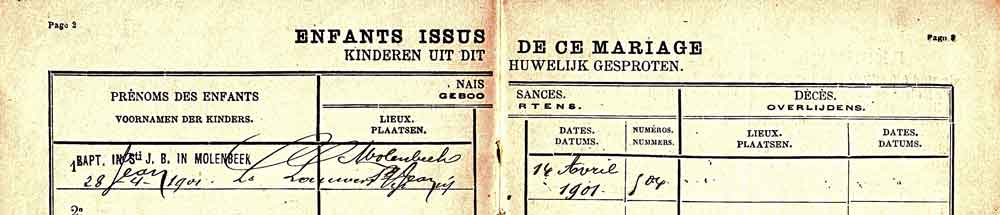 Page 2
Page 3
ENFANTS ISSUS DE CE MARIAGE
KINDEREN UIT DIT HUWELIJK GESPROTEN.
PRÉNOMS DES ENFANTS
VOORNAMEN DER KINDERS.
NAISSANCES.
GEBOORTENS.
DÉCÈS.
OVERLIJDENS.
LIEUX.
PLAATSEN.
DATES.
DATUMS.
NUMÉROS.
NUMMERS.
LIEUX.
PLAATSEN.
DATES.
DATUMS.
1º
BAPT. IN Sti J. B. IN MOLENBEEK
Jean
28 -4- 1901
Molenbeek
St Jean
14 Avril
1901
504
2º